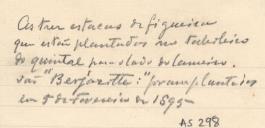 As tres estacas de figueira
que estão plantadas no taboleiro
do quintal para o lado do
são "Berjazotte": foram plantadas
em 5 de Fevereiro de 1895
AS 298